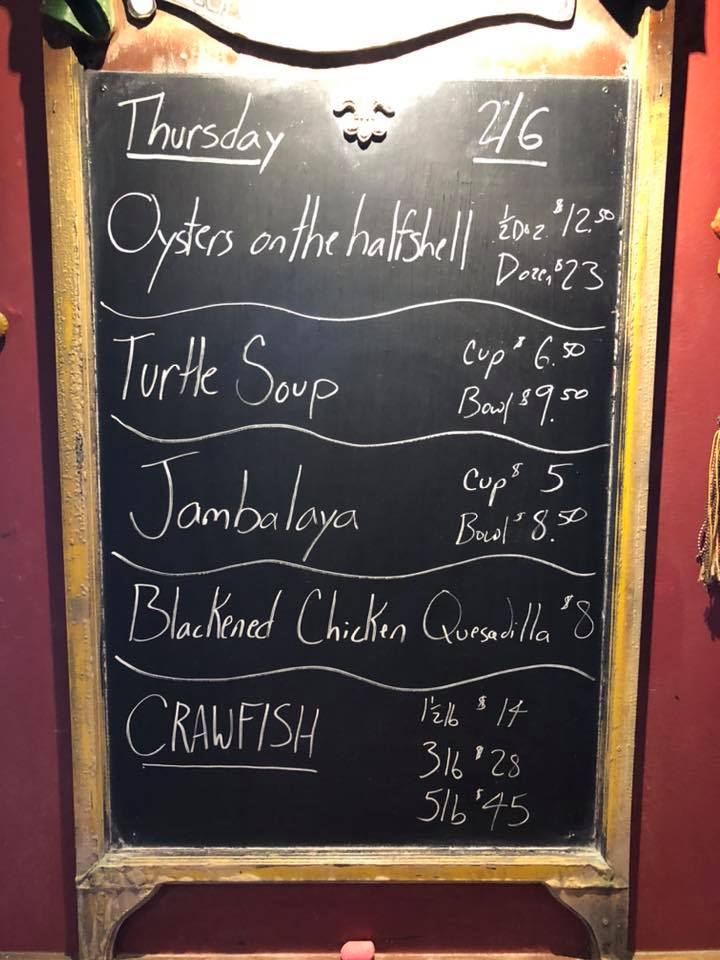 Thursday 2/6
Oysters on the halfshell ½ Doz $12.50
Dozen $23
Turtle Soup Cup $6.50
Bowl $9.50
Jambalaya Cup $5
Bowl $8.50
Blackened Chicken Quesadilla $8
CRAWFISH 1½lb $14
3lb $28
5lb $45